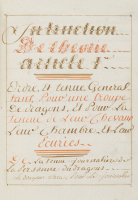 Instruction
De theorie
article 1er
Ordre, et tenue General
tant Pour une troupe
De dragons, et Pour La
tenue de Leur Chevaux
Leur Chambre et Leur
Ecuries
De La tenue Journaliere de
La Personne du dragon